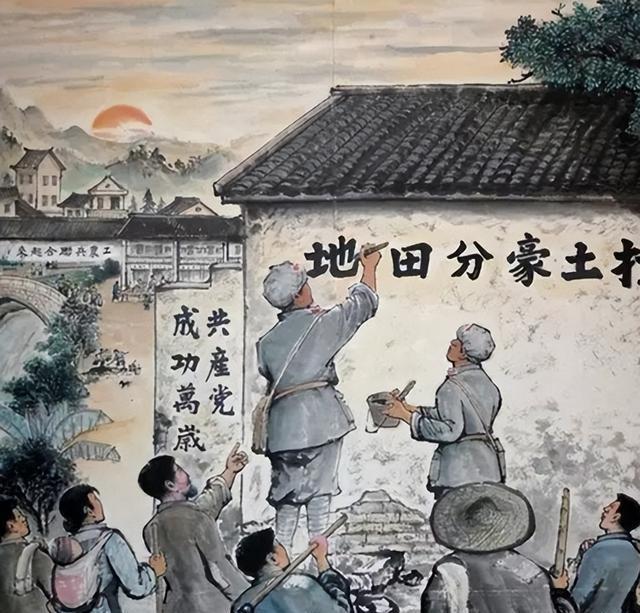 打土豪分田地
共産党
成功萬歲
工農兵聯合起来